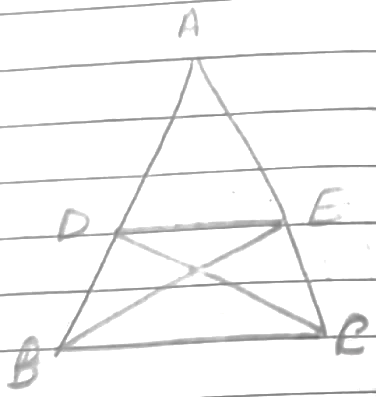 A
D E
B C